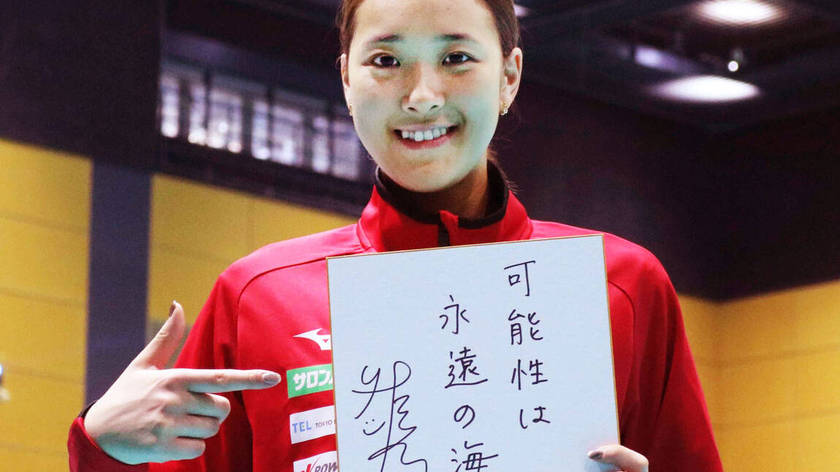 可能性は
永遠の海
サロン
TEL TOKYO
POW